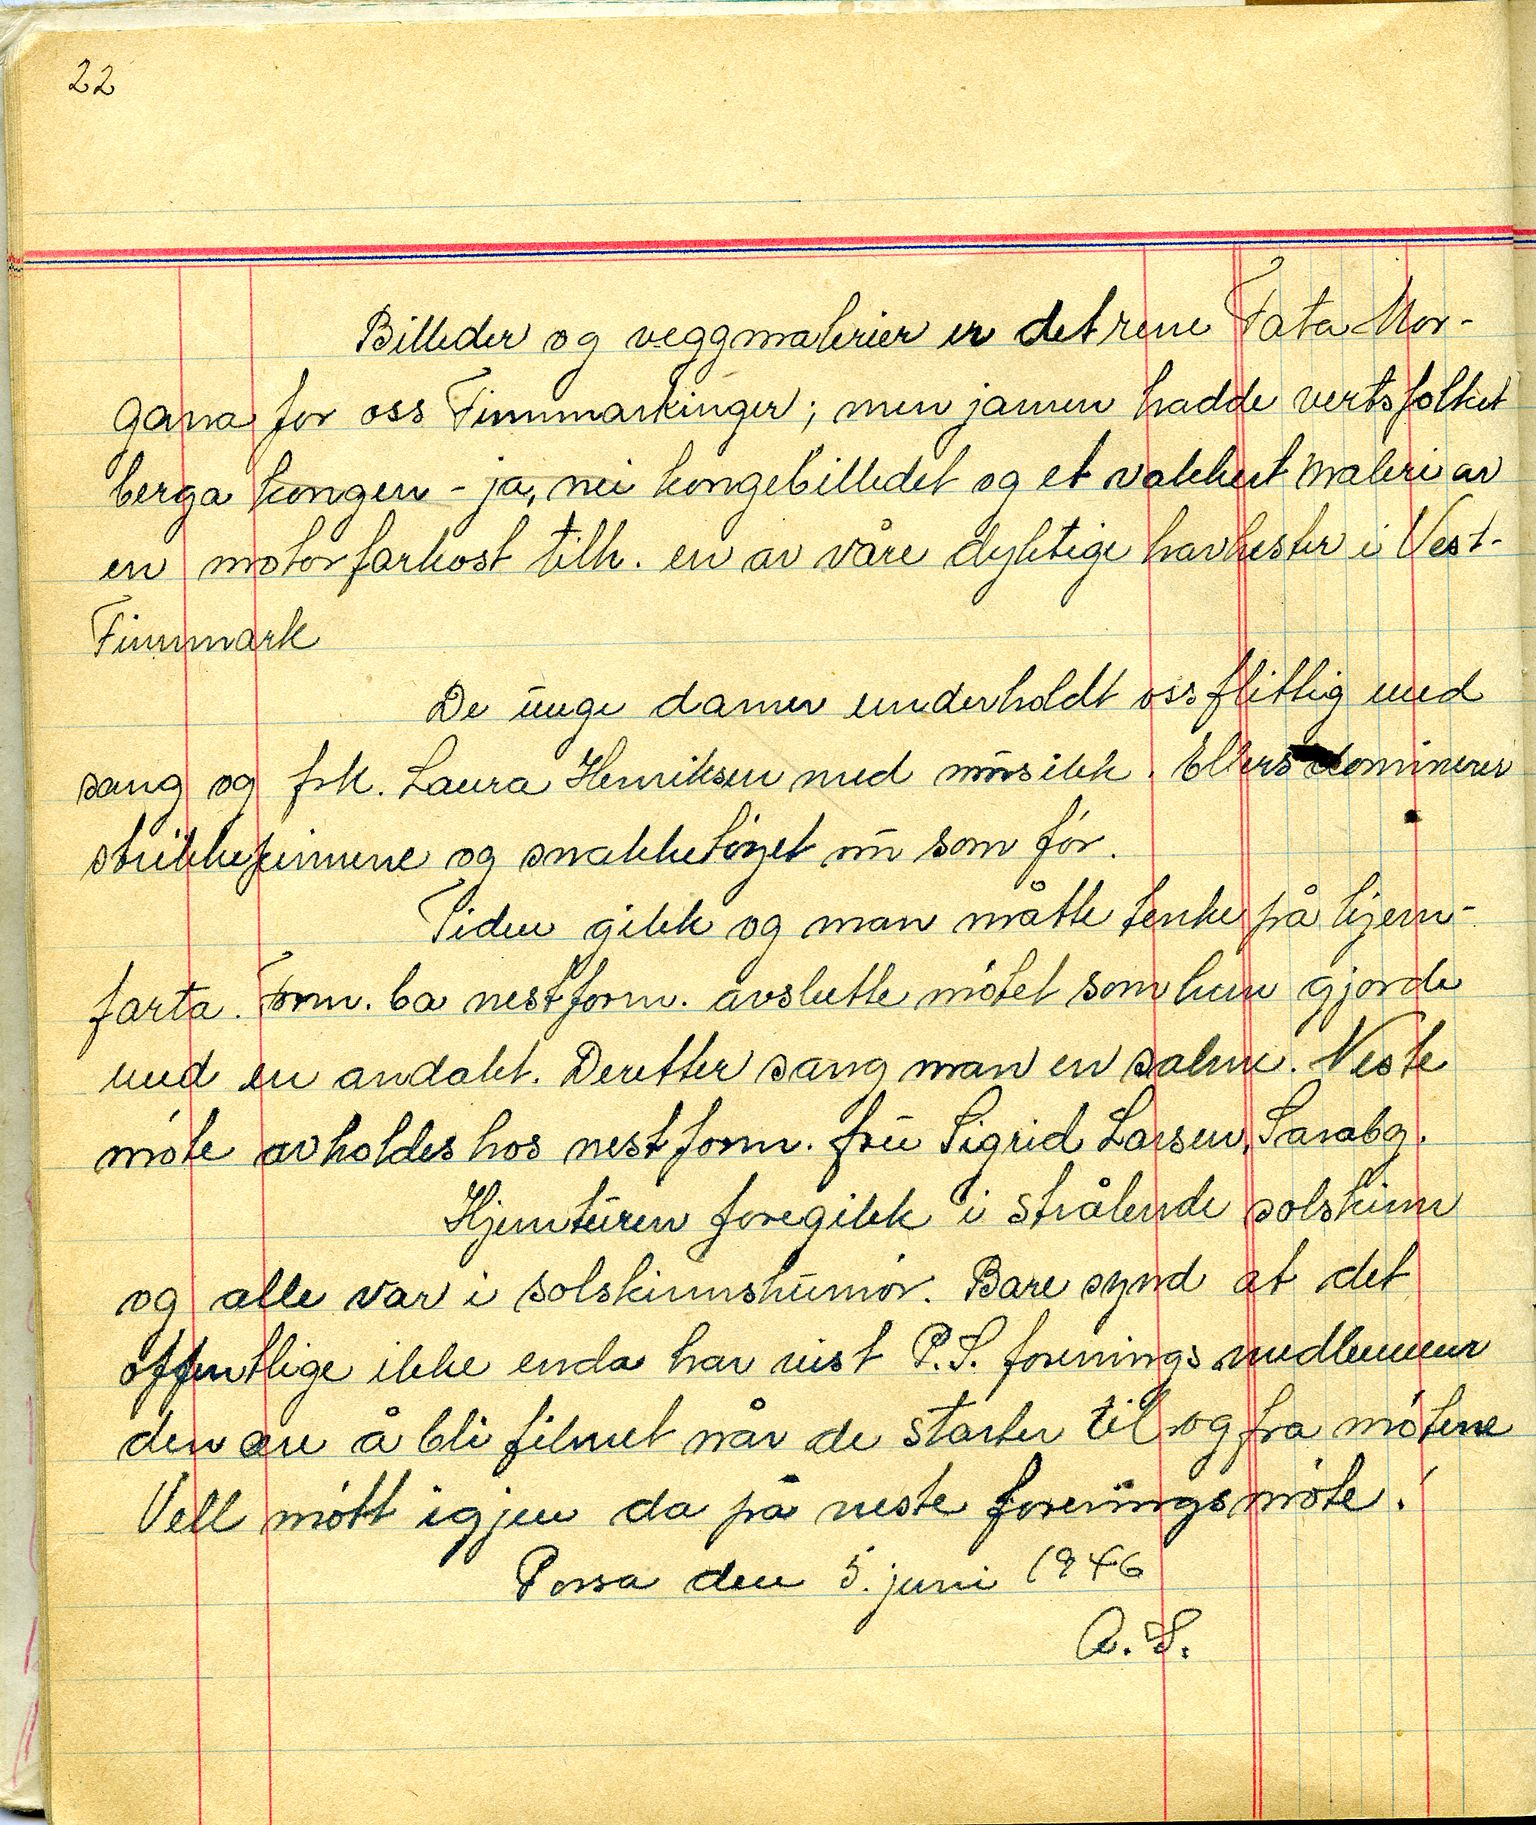 22
Billeder og veggmalerier er det rene Fata Mor-
gana for oss Finnmarkinger; men jamen hadde vertsfolket
berga kongen - ja, nei kongebilledet og et vakkert maleri av
en motorfarkost tilh. en av våre dyktige havhester i Vest-
Finnmark
De unge damer underholdt oss flittig med
sang og frk. Laura Henriksen med musikk. Ellers dominerer
strikkepinnene og snakketöyet nu som för.
Tiden gikk og man måtte tenke på hjem-
farta. Form. ba nestform. avslutte mötet som hun gjorde
med en andakt. Deretter sang man en salme. Neste
möte avholdes hos nestform. fru Sigrid Larsen, Sarabg.
Hjemturen foregikk i strålende solskinn
og alle var i solskinnshumör. Bare synd at det
offentlige ikke enda har vist P.S. forenings medlemmer
den ære å bli filmet når de starter til og fra mötene
Vell mött igjen da på neste foreningsmöte!
Porsa den 5. juni 1946
A.S.